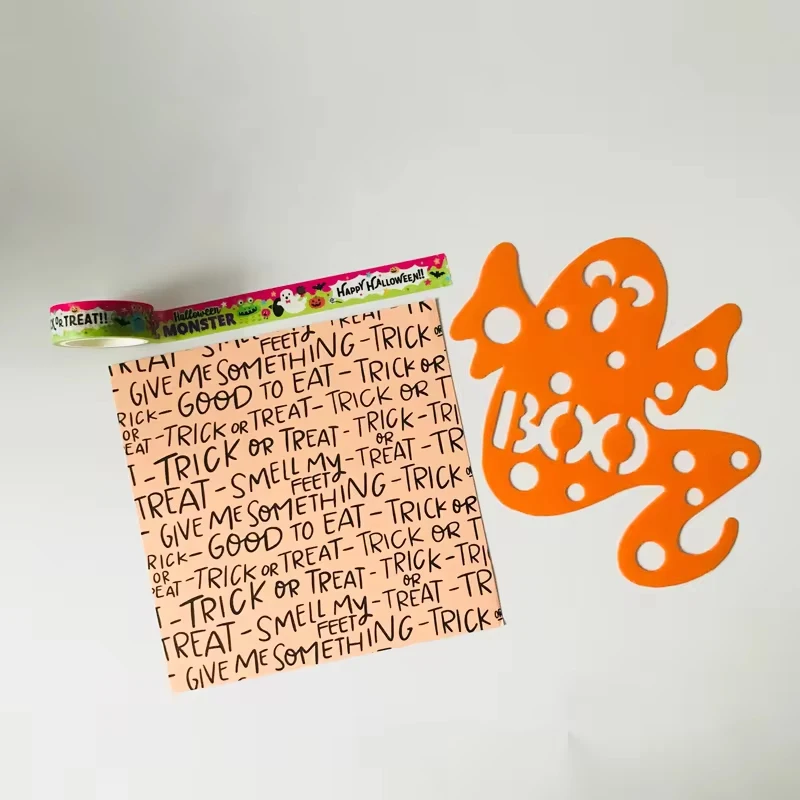 OR TREAT!!
Halloween
MONSTER
HAPPY HALLOWEEN!!
TREAT - SMELL MY FEET - TREAT - TRICK OR
- GIVE ME SOMETHING - TRICK OR
RICK - GOOD TO EAT - TRICK OR T
OR EAT - TRICK OR TREAT - TRICK - TRI
T - TRICK OR TREAT - TRICK OR
TREAT - SMELL MY FEET - TREAT - TR
- GIVE ME SOMETHING - TRICK OR
RICK - GOOD TO EAT - TRICK OR
OR EAT - TRICK OR TREAT - TRICK OR T
T - TRICK OR TREAT - TRICK - TRI
TREAT - SMELL MY FEET - OR TREAT - TR
- GIVE ME SOMETHING - TRICK OR
BOO